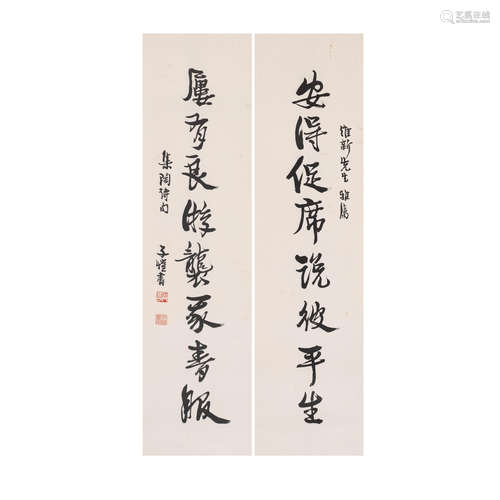 安得促席說彼平生
維新先生雅屬
屢有良游襲我春服
集陶詩句
子愷書